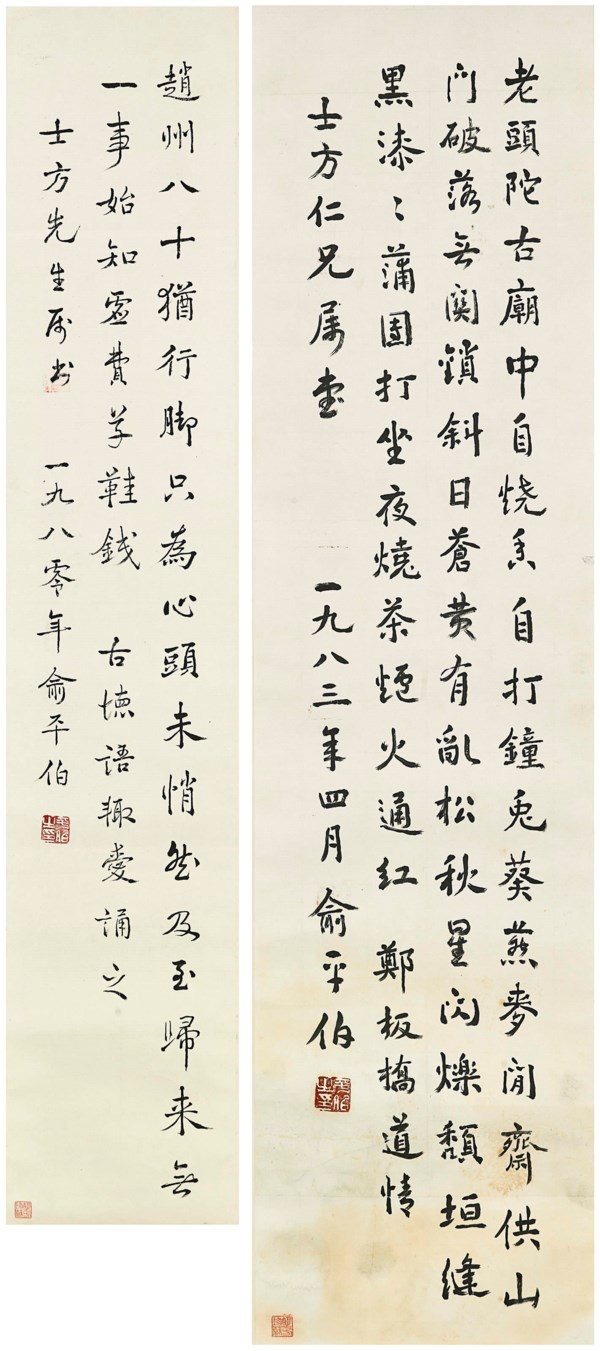 老頭陀古廟中自燒香自打鐘兎葵燕麥閒齋供山
門破落無関鎖斜日蒼黄有亂松秋星閃爍頹垣縫
黒漆〻蒲團打坐夜燒茶爐火通紅 鄭板橋道情
士方仁兄属書 一九八三年四月俞平伯
趙州八十猶行脚只為心頭未悄然及至歸来無
一事始知虚費草鞋錢 古德語輒愛誦之
士方先生属書 一九八零年俞平伯